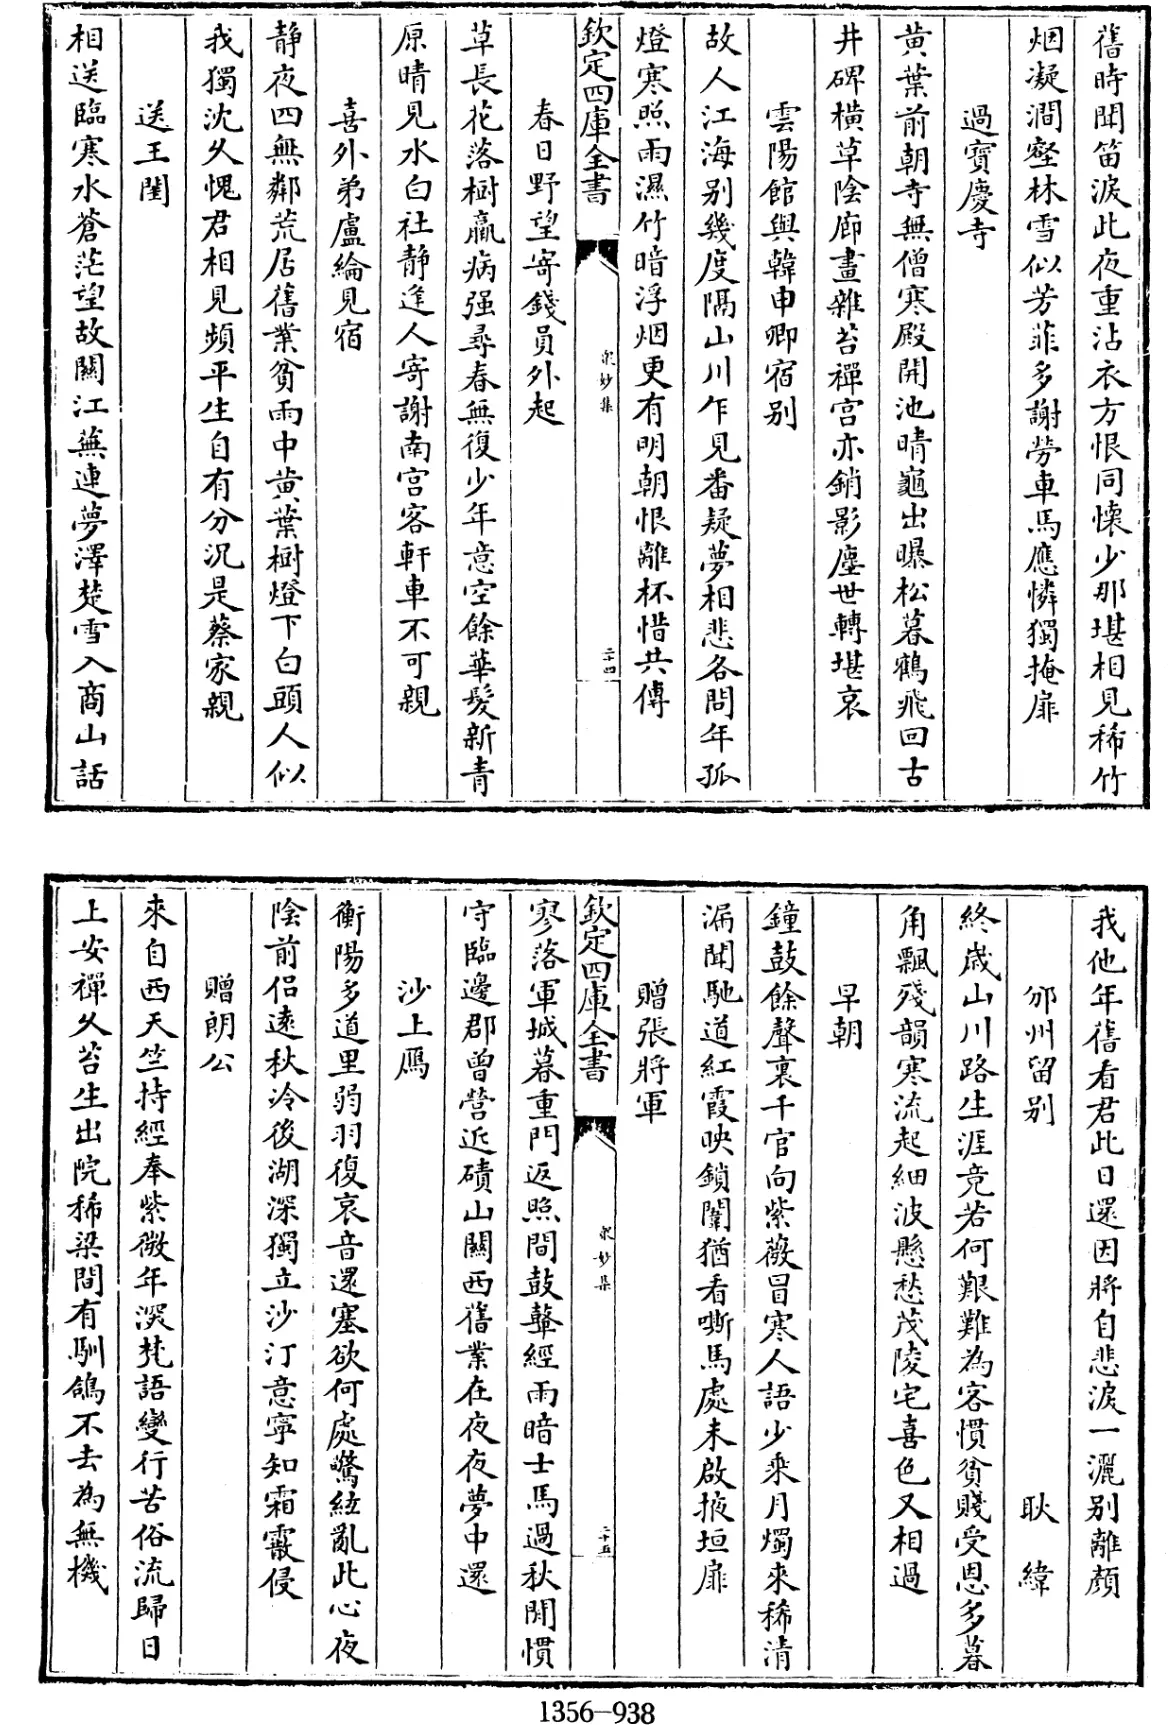 舊時聞笛淚此夜重沾衣方恨同懷少那堪相見稀竹
烟凝澗壑林雪似芳菲多謝勞車馬應憐獨掩扉
過寶慶寺
黄葉前朝寺無僧寒殿開池晴龜出曝松暮鶴飛回古
井碑横草陰廊畫雜苔禪宫亦銷影塵世轉堪哀
雲陽館與韓申卿宿别
故人江海别幾度隔山川乍見番疑夢相悲各問年孤
燈寒照雨濕竹暗浮烟更有明朝恨離杯惜共傳
欽定四庫全書
衆妙集
二十四
春日野望寄錢員外起
草長花落樹羸病强尋春無復少年意空餘華髮新青
原晴見水白社静逢人寄謝南宫客軒車不可親
喜外弟盧綸見宿
静夜四無鄰荒居舊業貧雨中黄葉樹燈下白頭人似
我獨沈久愧君相見頻平生自有分況是蔡家親
送王閏
相送臨寒水蒼茫望故關江蕪連夢澤楚雪入商山話
我他年舊看君此日還因將自悲淚一灑别離顔
邠州留别
耿緯
終歲山川路生涯竞若何艱難為客慣貧賤受恩多暮
角飄殘韻寒流起細波懸愁茂陵宅喜色又相過
早朝
鐘鼓餘聲裏千官向紫薇冒寒人語少乘月燭來稀清
漏聞馳道紅霞映鎖闈猶看嘶馬處未啟掖垣扉
贈張將軍
欽定四庫全書
衆妙集
二十五
寥落軍城暮重門返照間鼓鼙經雨暗士馬過秋閒慣
守臨邊郡曾營近磧山關西舊業在夜夜夢中還
沙上鴈
衡陽多道里弱羽復哀音還塞欲何處驚絃亂此心夜
陰前侣遠秋冷後湖深獨立沙汀意寧知霜霰侵
贈朗公
來自西天竺持經奉紫微年深梵語變行苦俗流歸日
上安禪久苔生出院稀梁間有馴鴿不去為無機
1356-938